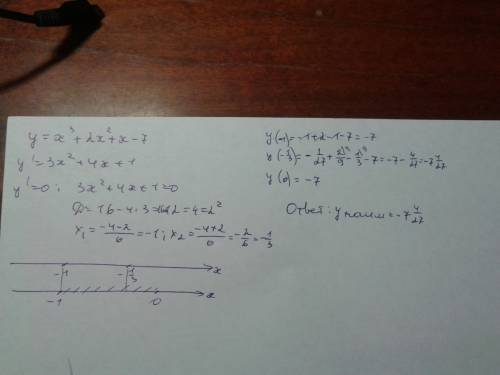 y = x³ + 2x² + x - 7
y' = 3x² + 4x + 1
y' = 0; 3x² + 4x + 1 = 0
D = 16 - 4·3 = 4 = 2²
x₁ = (-4-2)/6 = -1; x₂ = (-4+2)/6 = -2/6 = -1/3
-1 -1/3 x
-1 0 x
y(-1) = -1+2-1-7 = -7
y(-1/3) = -1/27 + 2/9 - 1/3 - 7 = -7 - 4/27 = -7 4/27
y(0) = -7
Ответ: y наим = -7 4/27